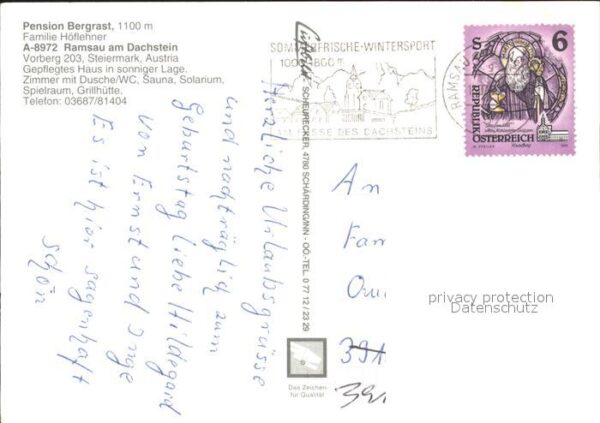 Pension Bergrast, 1100 m
Familie Höflehner
A-8972 Ramsau am Dachstein
Vorberg 203, Steiermark, Austria
Gepflegtes Haus in sonniger Lage.
Zimmer mit Dusche/WC, Sauna, Solarium,
Spielraum, Grillhütte.
Telefon: 03687/81404
Herzliche Urlaubsgrüsse
und nachträglich zum
Geburtstag liebe Hildegard
von Ernst und Inge
Es ist hier sagenhaft
schön
SCHEURECKER, 4780 SCHÄRDING/INN - OÖ-TEL. 0 77 12 / 23 29
Das Zeichen
für Qualität
SOMMERFRISCHE-WINTERSPORT
DES DACHSTEINS
RAMSAU
S 6
REPUBLIK
ÖSTERREICH
An
Fam
privacy protection
Datenschutz